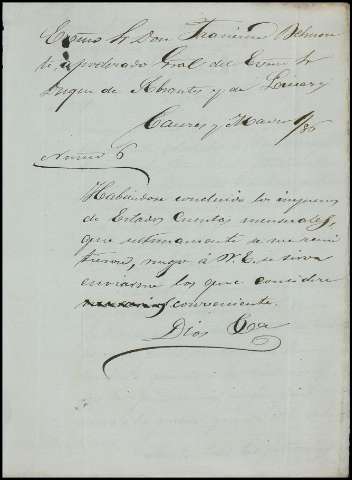 Excmo Sr Don Francisco Belmon
te apoderado Gral del Excmo Sr
Duque de Abrantes y de Linares
Caceres y Marzo 1/86
Número 6
Habiendose concluido los impresos
de Estados Cuentas mensuales,
que ultimamente se me remi
tieron, ruego á V. E. se sirva
enviarme los que considere
conveniente.
Dios &ca